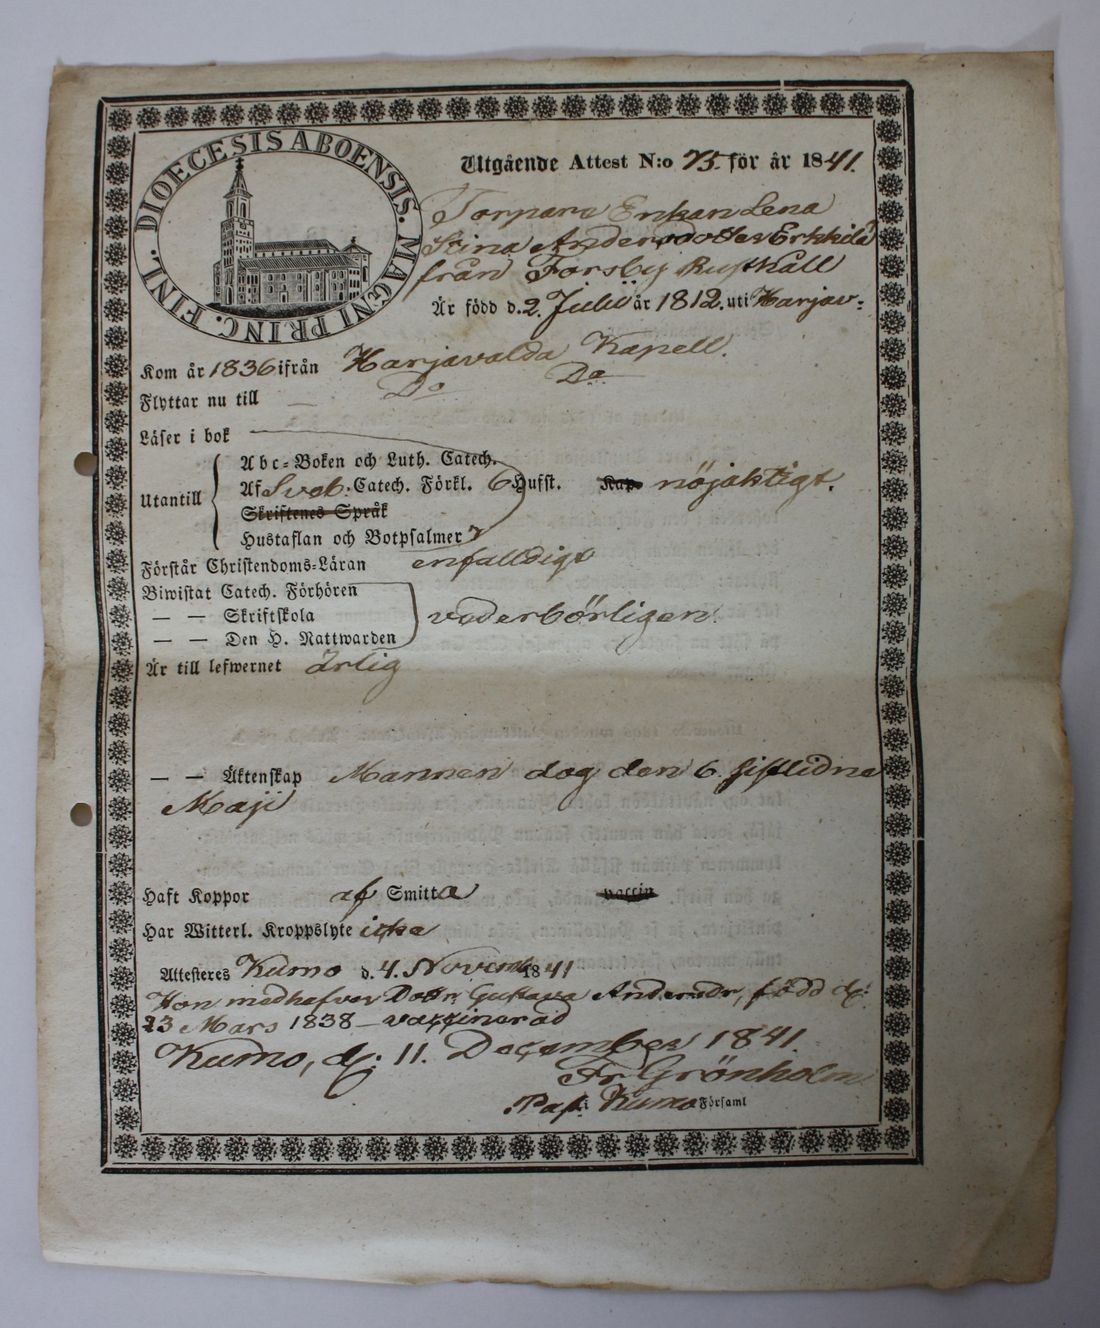 DIOECESIS ABOENSIS. MAGNI PRINC. FINL.
Utgående Attest N:o 75. för år 1841.
Torpare Enkan Lena
Stina Andersdotter Erkkilä
från Forsby Rusthåll
Är född d. 2. Julii år 1812. uti Harjav:
Kom år 1836 ifrån Harjavalda Kapell.
Flyttar nu till — Do Do
Läser i bok
Utantill
Abc-Boken och Luth. Catech.
Af Sveb. Catech. Förkl. 6 Hufst. Kap. nöjaktigt.
Skriftenes Språk
Hustaflan och Botpsalmer
Förstår Christendoms-Läran enfalldigt
Biwistat Catech. Förhören
— — Skriftskola vederbörligen.
— — Den H. Nattwarden
Är till lefwernet ärlig
— — Äktenskap Mannen dog den 6. sistlidne
Maji
Haft Koppor af Smitta vaccin
Har Witterl. Kroppslyte icke
Attesteres Kumo d. 4. Novemb 1841
Hon medhafver Dottr. Gustava Andersdr, född d:
23 Mars 1838 — vaccinerad
Kumo, d. 11. December 1841.
Fr Grönholm
Past. i Kumo Församl